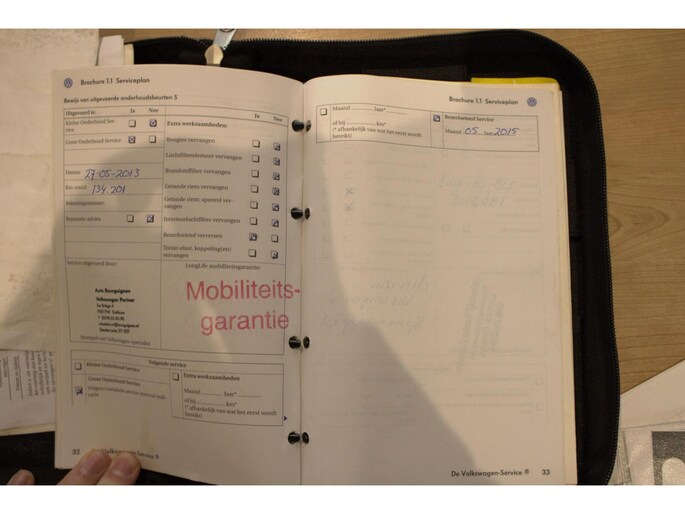 Brochure 1.1 Serviceplan
Bewijs van uitgevoerde onderhoudsbeurten 5
Uitgevoerd is ... Ja Nee
Kleine Onderhoud Ser-
vice
Grote Onderhoud Service
Datum: 27-05-2013
Km-stand: 134.201
Reparatie advies
Werkzaamheden uitgevoerd door:
Auto Bourguignon
Volkswagen Partner
Stempel van Volkswagen specialist
Ja Nee
Extra werkzaamheden:
Bougies vervangen
Luchtfilterelement vervangen
Brandstoffilter vervangen
Getande riem vervangen
Getande riem: spanrol ver-
vangen
Interieurluchtfilter vervangen
Remvloeistof verversen
vervangen
LongLife mobiliteitsgarantie
Mobiliteits-
garantie
Volgende service
Kleine Onderhoud Service
Grote Onderhoud Service
Extra werkzaamheden
Maand Jaar*
of bij km*
(* afhankelijk van wat het eerst wordt
bereikt)
32
De Volkswagen-Service ®
Brochure 1.1 Serviceplan
Maand Jaar*
of bij km*
(* afhankelijk van wat het eerst wordt
bereikt)
Remvloeistof Service
Maand 05 Jaar 2015
De Volkswagen-Service ® 33